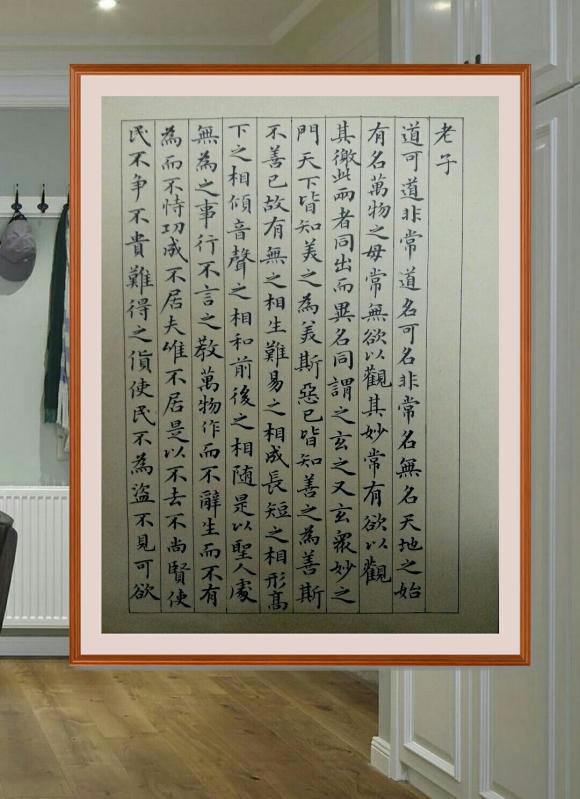 老子
道可道非常道名可名非常名無名天地之始
有名萬物之母常無欲以觀其妙常有欲以觀
其徼此兩者同出而異名同謂之玄之又玄眾妙之
門天下皆知美之為美斯惡已皆知善之為善斯
不善已故有無之相生難易之相成長短之相形高
下之相傾音聲之相和前後之相随是以聖人處
無為之事行不言之教萬物作而不辭生而不有
為而不恃功成不居夫唯不居是以不去不尚賢使
民不争不貴難得之貨使民不為盜不見可欲